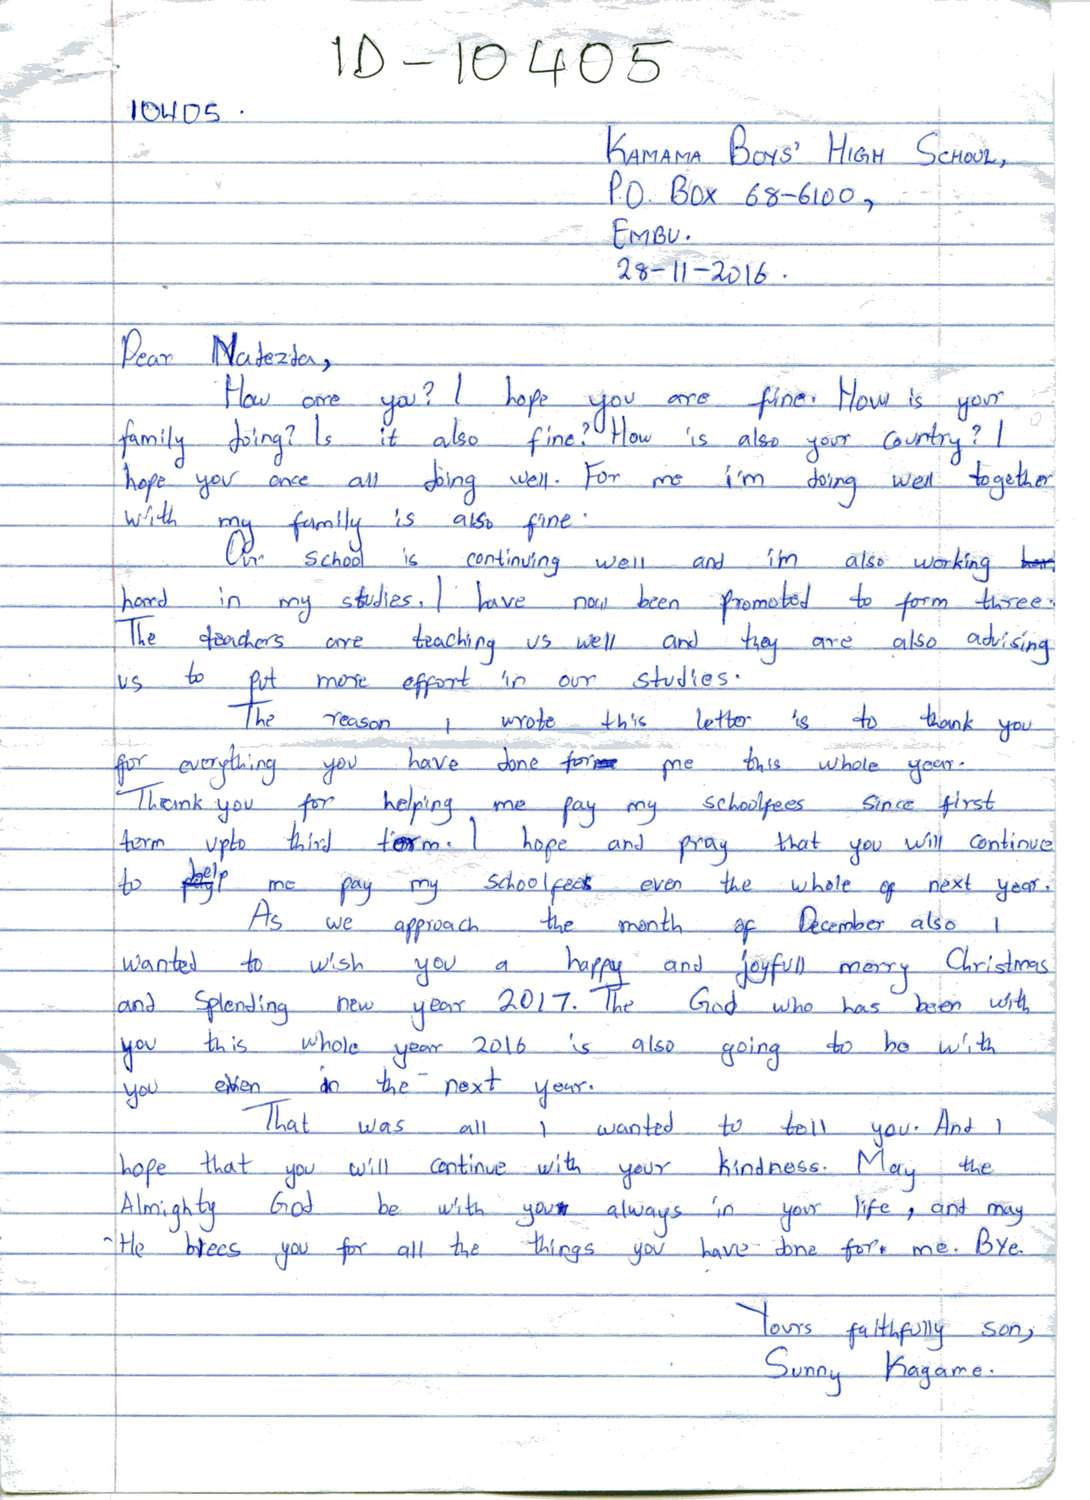 ID-10405
10405.
KAMAMA BOYS' HIGH SCHOOL,
P.O. BOX 68-6100,
EMBU.
28-11-2016.
Dear Natezta,
How are you? I hope you are fine. How is your
family doing? Is it also fine? How is also your country? I
hope you once all doing well. For me i'm doing well together
with my family is also fine.
Our school is continuing well and i'm also working
hard in my studies. I have now been promoted to form three.
The teachers are teaching us well and they are also advising
us to put more effort in our studies.
The reason I wrote this letter is to thank you
for everything you have done for me this whole year.
Thank you for helping me pay my schoolfees since first
term upto third term. I hope and pray that you will continue
to help me pay my schoolfees even the whole of next year.
As we approach the month of December also I
wanted to wish you a happy and joyfull merry Christmas
and Splending new year 2017. The God who has been with
you this whole year 2016 is also going to be with
you even in the next year.
That was all I wanted to tell you. And I
hope that you will continue with your kindness. May the
Almighty God be with you always in your life, and may
He blees you for all the things you have done for me. Bye.
Yours faithfully son,
Sunny Kagame.